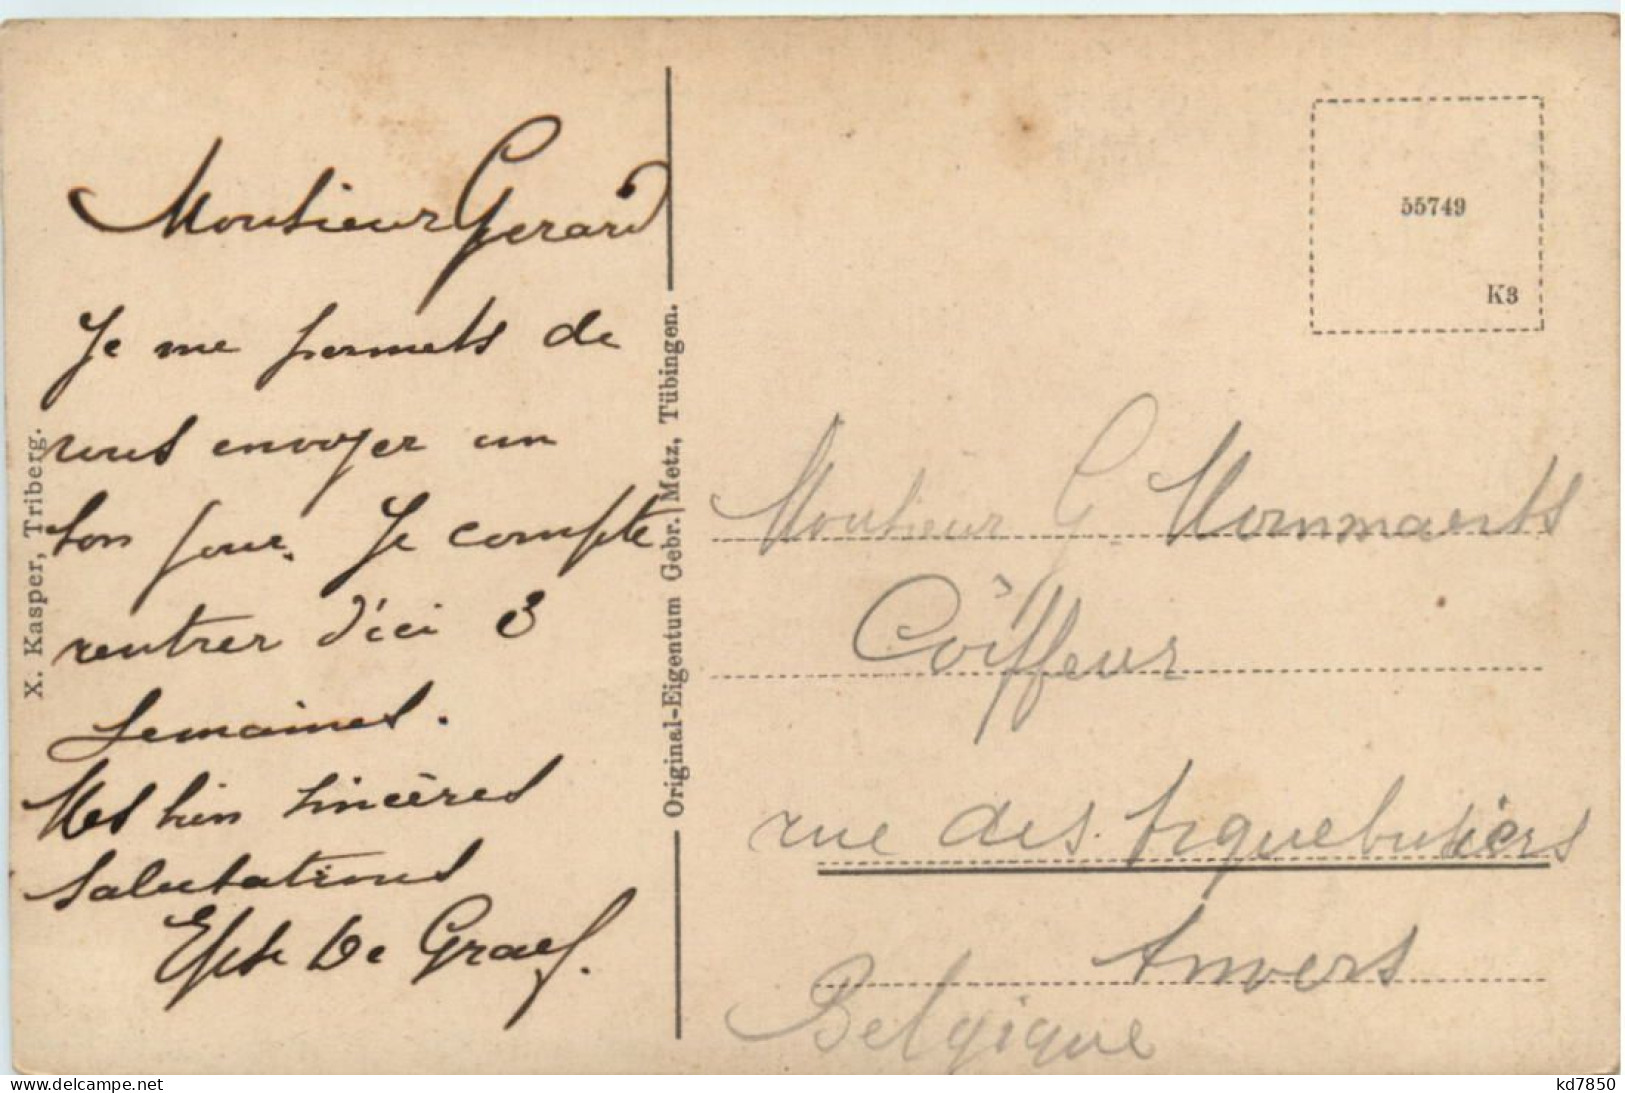 Monsieur Gerard
Je me permets de
vous envoyer un
bon jour. Je compte
rentrer d'ici 3
semaines.
Mes bien sincères
salutations
De Graef.
X. Kasper, Triberg.
Original-Eigentum Gebr. Metz, Tübingen.
55749
K3
Monsieur G. Mommaerts
Coiffeur
rue des Arquebusiers
Anvers
Belgique
www.delcampe.net
kd7850